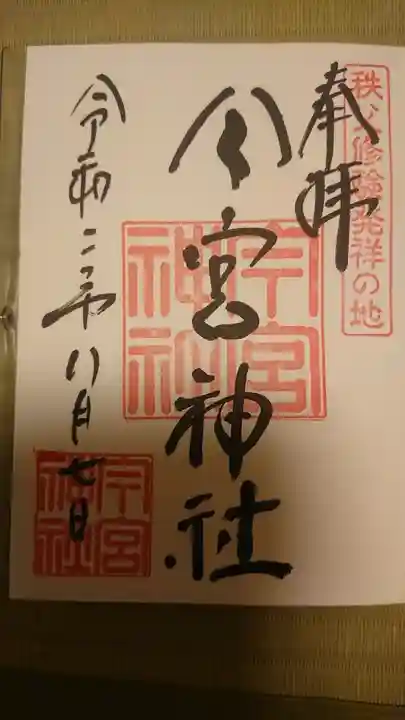 秩父修験発祥の地
奉拝
今宮神社
今宮神社
令和二年八月七日
今宮神社